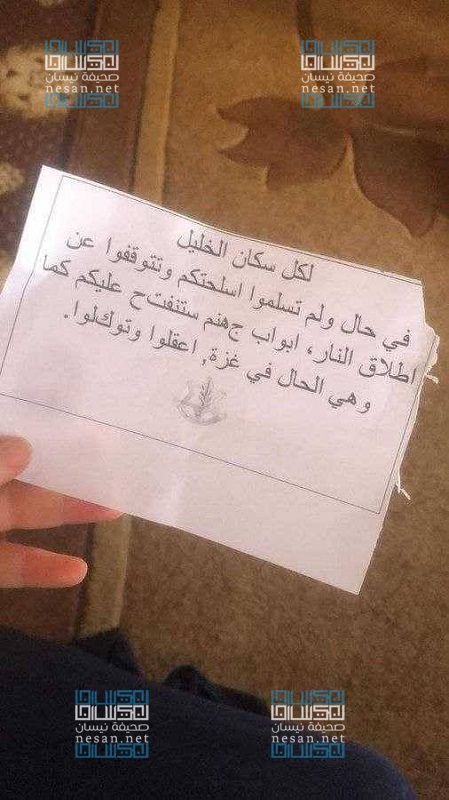 صحيفة نيسان
nesan.net
صحيفة نيسان
nesan.net
لكل سكان الخليل
في حال ولم تسلموا اسلحتكم وتتوقفوا عن
اطلاق النار، ابواب جهنم ستنفتح عليكم كما
وهي الحال في غزة, اعقلوا وتوكلوا.
صحيفة نيسان
nesan.net
صحيفة نيسان
nesan.net